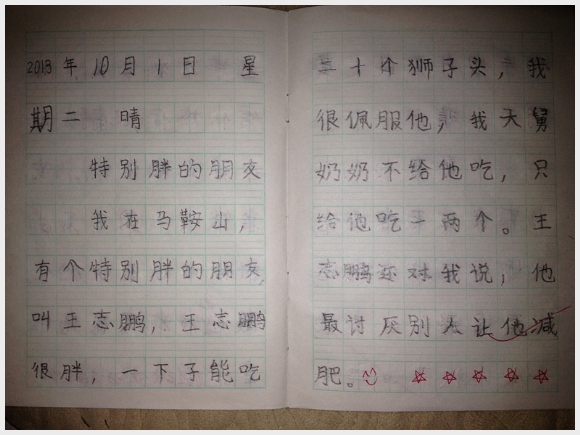 2013年10月1日 星
期二 晴
特别胖的朋友
我在马鞍山,
有个特别胖的朋友,
叫王志鹏,王志鹏
很胖,一下子能吃
二十个狮子头,我
很佩服他,我大舅
奶奶不给他吃,只
给他吃一两个。王
志鹏还对我说,他
最讨厌别人让他减
肥。